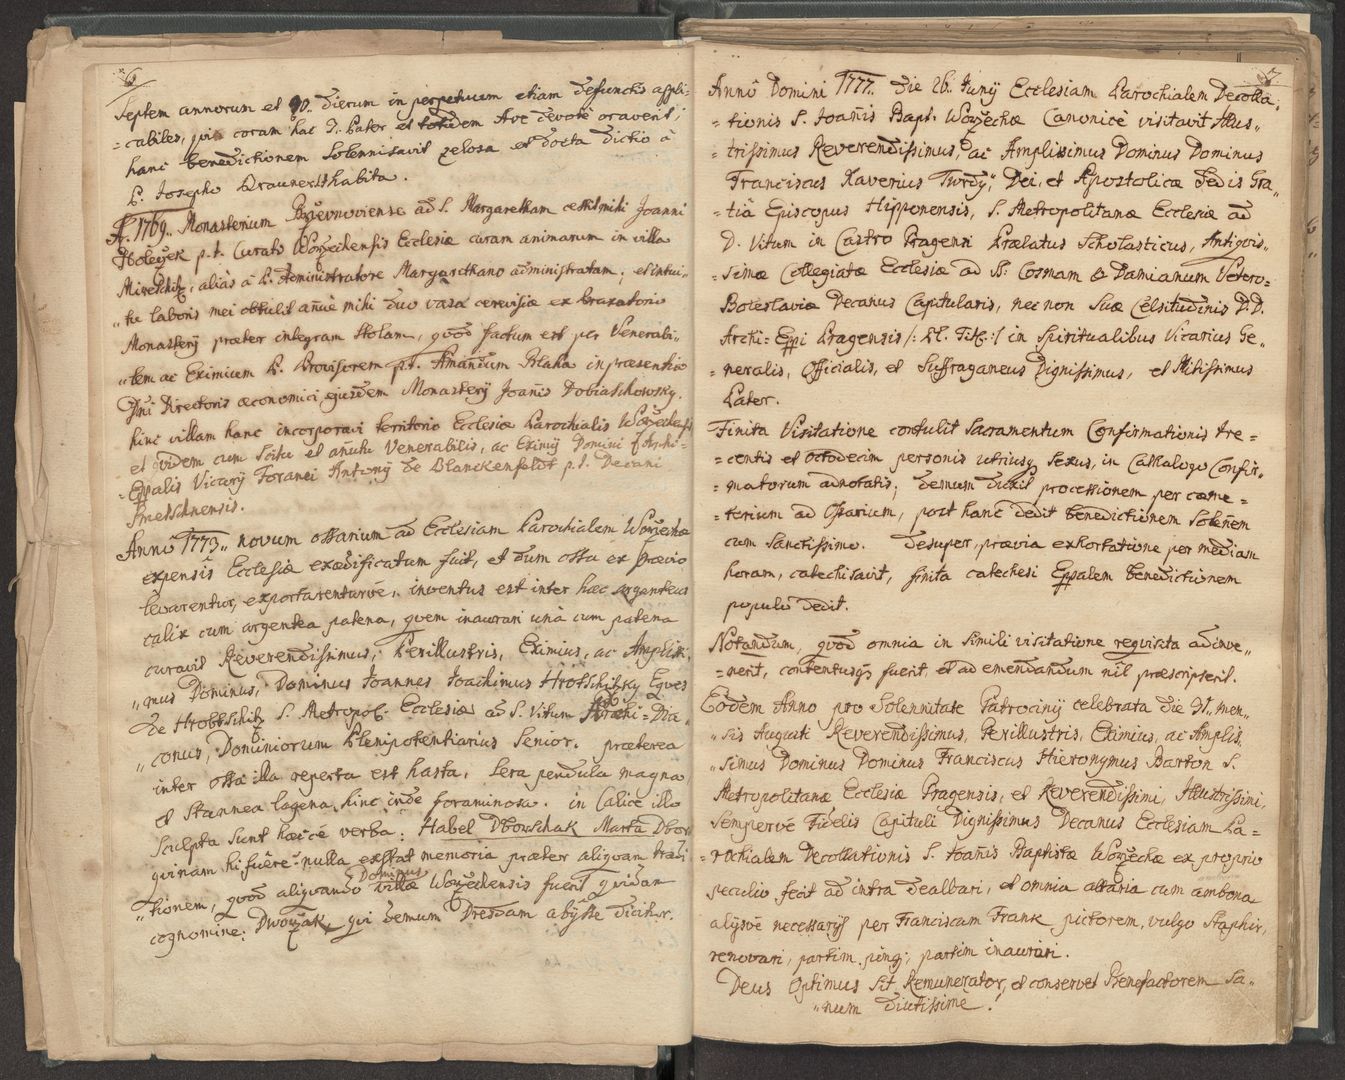 6
Septem annorum et 90. dierum in perpetuum etiam defunctis appli-
=cabiles, qui coram hac 5. Pater, et totidem Ave devotè oraverit;
hanc benedictionem solennisavit zelosa et docta dictio à
P. Josepho habita.
A. 1769. Monasterium Brzevnoviense ad S. Margaretham cessit mihi Joanni
p. t. Curato Worzechensis Ecclesiæ curam animarum in villa
aliàs à P. Administratore Margarethano administratam; et intui-
"tu laboris mei obtulit añuè mihi duo vasa cerevisiæ ex braxatorio
Monasterij præter integram Stolam, quod factum est per Venerabi-
"lem ac Eximium P. Provisorem p. t. Amandum Blaha in præsentia
Dñi Directoris œconomici ejusdem Monasterij Joañis Dobiaschowsky.
hinc villam hanc incorporavi territorio Ecclesiæ Parochialis Worzechensi
et quidem cum scitu et añutu Venerabilis, ac Eximij Domini Archi-
=Eppalis Vicarij Foranei Antonij de Blanckenfeldt p. t. Decani

Annô 1773" novum ossarium ad Ecclesiam Parochialem Worzechæ
expensis Ecclesiæ exædificatum fuit, et dum ossa ex prævio
levarentur, exportarenturvè, inventus est inter hæc argenteus
calix cum argentea patena, quem inaurari unà cum patena
curavit Reverendissimus, Perillustris, Eximius, ac Amplissi-
"mus Dominus, Dominus Joannes Joachimus Hrobschitzky Eques
de Hrobschitz S. Metropol. Ecclesiæ ad S. Vitum Archi-Dia-
"conus, Dominiorum Plenipotentiarius Senior. præterea
inter ossa illa reperta est hasta, sera pendula magna,
et stannea lagena hinc inde foraminosa. in Calice illo
sculpta sunt hæcce verba: Habel Dborschak Marta Dbor
quinam hi fuêre? nulla exstat memoria præter aliquam tradi
"tionem, quod aliquando Dominus villæ Worzechensis fuerit quidam
cognomine: Dworzak, qui demum Dresdam abijsse dicitur.
7.
Annô Domini 1777. die 26. Junij Ecclesiam Parochialem Decolla-
=tionis S. Joañis Bapt. Worzechæ Canonicè visitavit Illus"
=trissimus Reverendissimus, ac Amplissimus Dominus Dominus
Franciscus Xaverius Twrdy, Dei, et Apostolicæ Sedis Gra-
=tiâ Episcopus Hipponensis, S. Metropolitanæ Ecclesiæ ad
D. Vitum in Castro Pragensi Prælatus Scholasticus, Antiquis"
=simæ Collegiatæ Ecclesiæ ad SS. Cosmam & Damianum Vetero-
Boleslaviæ Decanus Capitularis, nec non Suæ Celsitudinis D.D.
Archi=Eppi Pragensis /: Pl. Tit. :/ in Spiritualibus Vicarius Ge"
=neralis, Officialis, et Suffraganeus Dignissimus, et Mitissimus
Pater.
Finita Visitatione contulit Sacramentum Confirmationis tre-
=centis et octodecim personis utriusq. sexus, in Cathalogo Confir"
=matorum adnotatis; demum duxit processionem per cœme-
=terium ad Ossarium, post hanc dedit benedictionem Soleñem
cum Sanctissimo. desuper, prævia exhortatione per mediam
horam, catechisavit, finita catechesi Eppalem benedictionem
populo dedit.
Notandum, quod omnia in simili visitatione requisita adinve"
=nerit, contentusq. fuerit, et ad emendandum nil præscripserit.
Eodem Anno pro Solennitate Patrocinij celebrata die 31. men-
"sis Augusti Reverendissimus, Perillustris, Eximius, ac Amplis"
"simus Dominus Dominus Franciscus Hieronymus Barton S.
Metropolitanæ Ecclesiæ Pragensis, et Reverendissimi, Illustrissimi,
Sempervè Fidelis Capituli Dignissimus Decanus Ecclesiam Pa-
=rochialem Decollationis S. Joañis Baptistæ Worzechæ ex proprio
peculio fecit ad intra dealbari, et omnia altaria cum ambona
alijsvè necessarijs per Franciscum Frank pictorem, vulgo Staphir,
renovari, partim pingi, partim inaurari.
Deus Optimus sit Remunerator, et conservet Benefactorem sa"
"num diutissime!